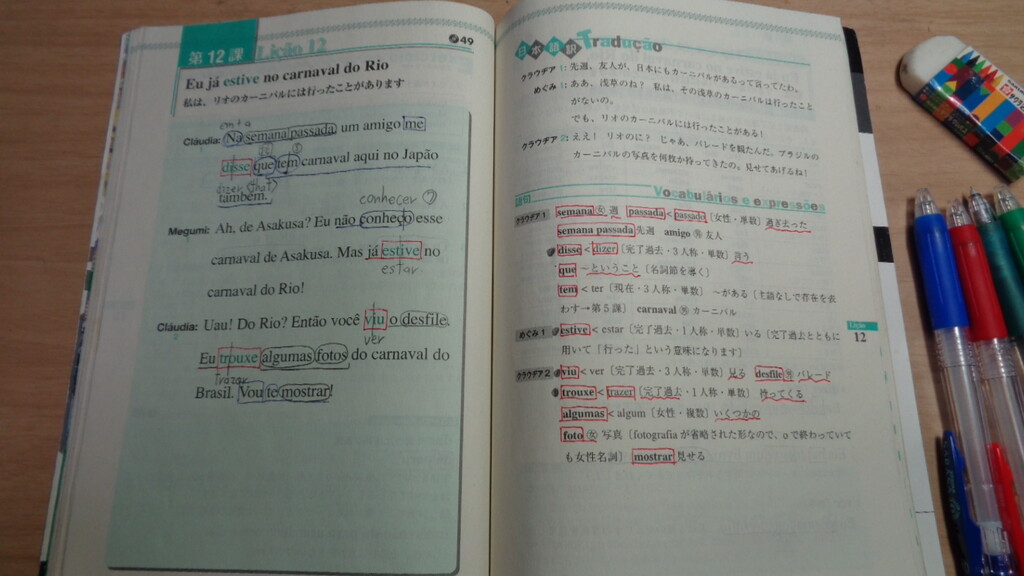 第12課 Lição 12
49
Eu já estive no carnaval do Rio
私は、リオのカーニバルには行ったことがあります
Cláudia: Na semana passada um amigo me
disse que tem carnaval aqui no Japão
dizer (that)
também.
conhecer
Megumi: Ah, de Asakusa? Eu não conheço esse
carnaval de Asakusa. Mas já estive no
estar
carnaval do Rio!
Cláudia: Uau! Do Rio? Então você viu o desfile.
ver
Eu trouxe algumas fotos do carnaval do
Brasil. Vou te mostrar!
日本語訳 Tradução
クラウヂア 1: 先週、友人が、日本にもカーニバルがあるって言ってたわ。
めぐみ 1: ああ、浅草のね? 私は、その浅草のカーニバルは行ったこと
がないの。
でも、リオのカーニバルには行ったことがある!
クラウヂア 2: ええ! リオのに? じゃあ、パレードを観たんだ。ブラジルの
カーニバルの写真を何枚か持ってきたの。見せてあげるね!
語句 Vocabulários e expressões
クラウヂア1 semana 女 週 passada < passado [女性・単数] 過ぎ去った
semana passada 先週 amigo 男 友人
disse < dizer [完了過去・3人称・単数] 言う
que ~ということ [名詞節を導く]
tem < ter [現在・3人称・単数] ~がある [主語なしで存在を表
わす→第5課] carnaval 男 カーニバル
めぐみ1 estive < estar [完了過去・1人称・単数] いる [完了過去とともに
用いて「行った」という意味になります]
クラウヂア2 viu < ver [完了過去・3人称・単数] 見る desfile 男 パレード
trouxe < trazer [完了過去・1人称・単数] 持ってくる
algumas < algum [女性・複数] いくつかの
foto 女 写真 [fotografia が省略された形なので、o で終わっていて
も女性名詞] mostrar 見せる
Lição
12